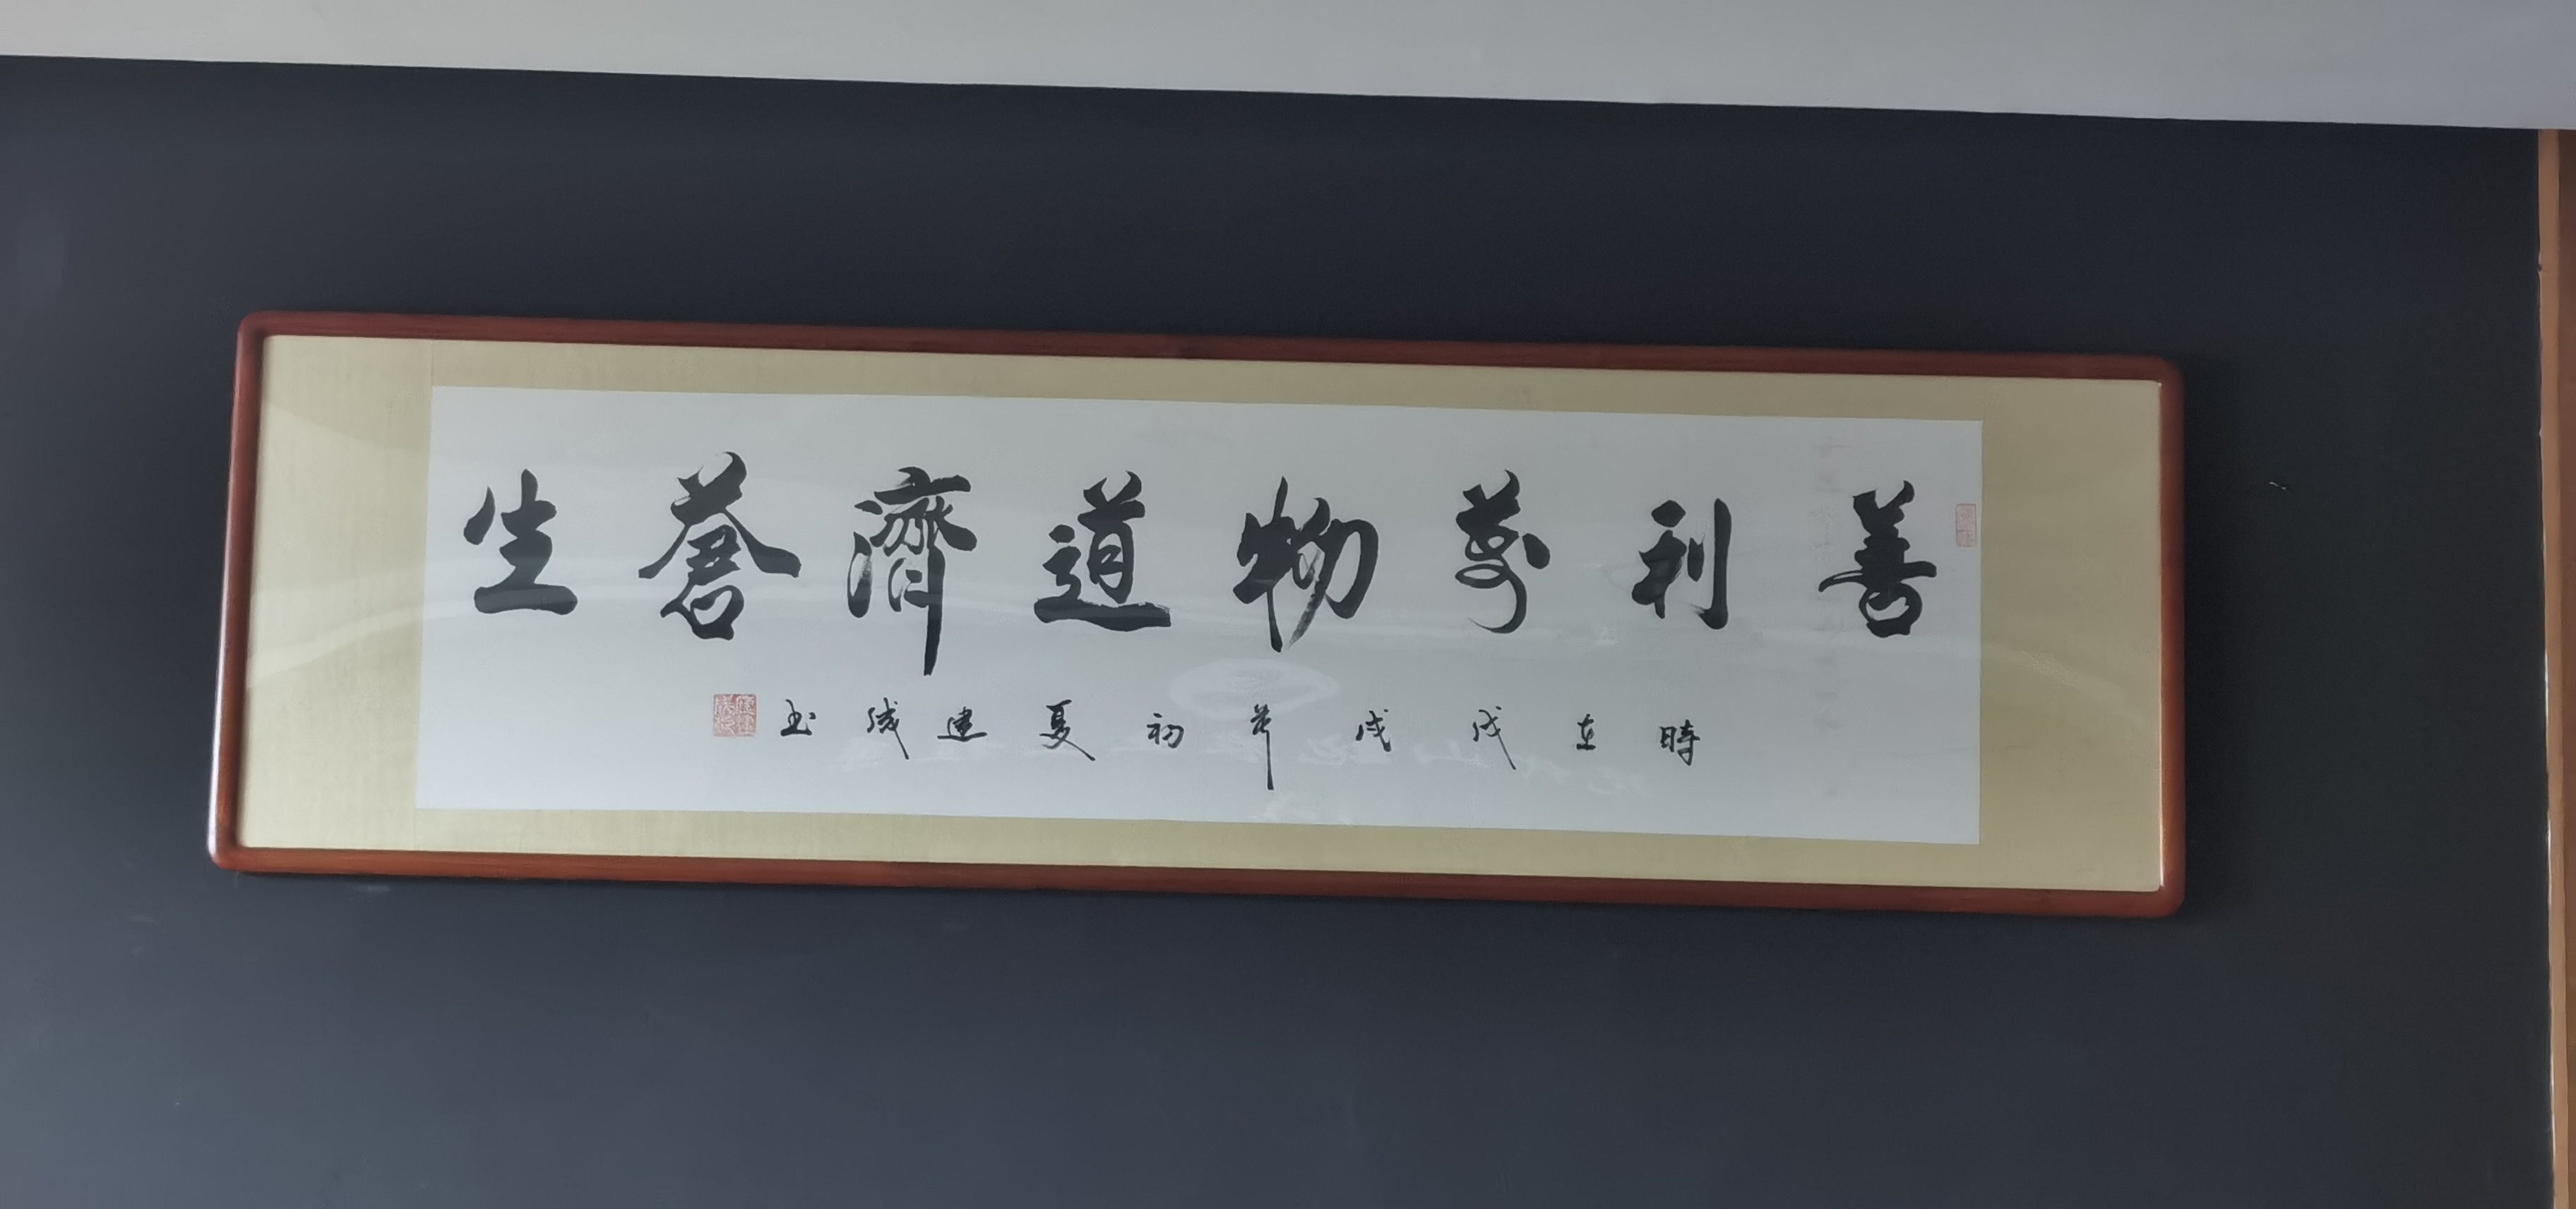 善利萬物道濟蒼生
時在戊戌年初夏建成書